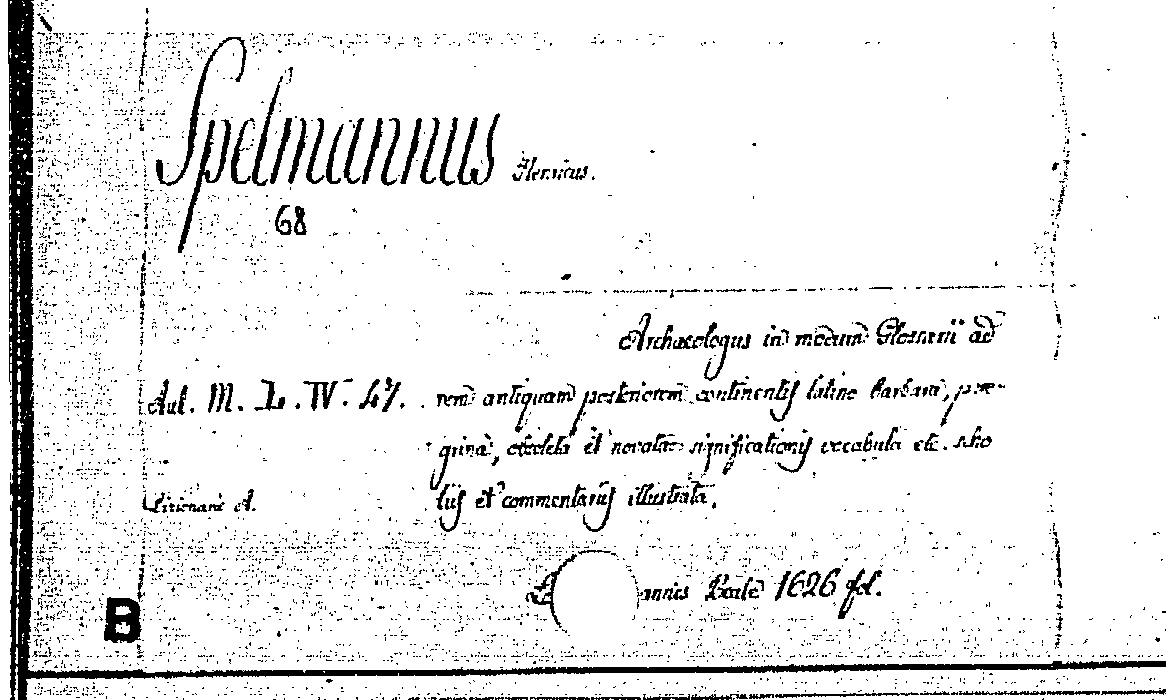 Spelmannus Henricus.
68
Archaeologus in modum Glossarii ad
Aul. M. L. IV. 47. rem antiquam posteriorem continentis latino barbara, pere-
grina, obsoleta et novatae significationis vocabula etc. scho
liis et commentariis illustrata.
Dictionaria A.
annis Beale 1626 fol.
B